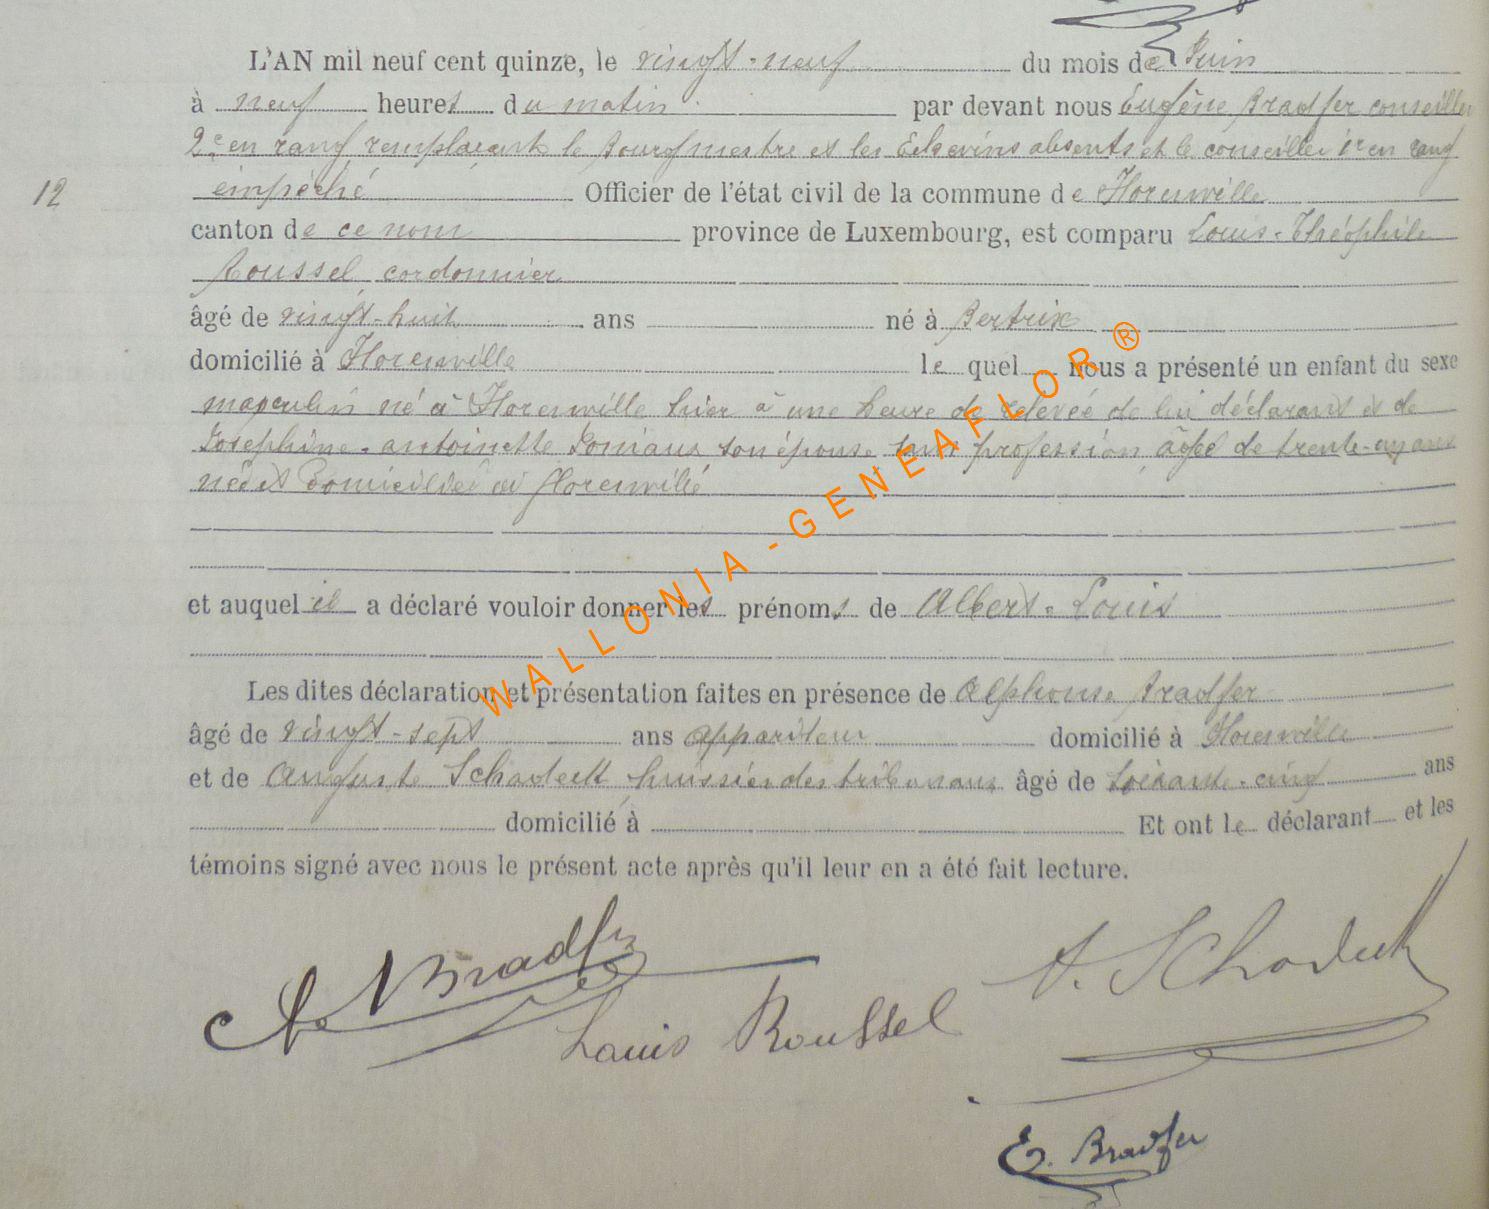 L'AN mil neuf cent quinze, le vingt-neuf du mois de Juin
à neuf heures du matin par devant nous Eugène Bradfer conseiller
2e en rang remplaçant le Bourgmestre et les Echevins absents et le conseiller 1er en rang
12
empêché Officier de l'état civil de la commune de Florenville
canton de ce nom province de Luxembourg, est comparu Louis-Théophile
Roussel cordonnier
âgé de vingt-huit ans né à Bertrix
domicilié à Florenville le quel nous a présenté un enfant du sexe
masculin né à Florenville hier à une heure de relevée de lui déclarant et de
Joséphine-antoinette son épouse sans profession âgée de trente-un ans
née et domiciliée à florenville
et auquel il a déclaré vouloir donner les prénoms de Albert-Louis
Les dites déclaration et présentation faites en présence de Alphonse Bradfer
âgé de vingt-sept ans appariteur domicilié à Florenville
et de Auguste Schadeck huissier des tribunaux âgé de soixante-cinq ans
domicilié à Et ont le déclarant et les
témoins signé avec nous le présent acte après qu'il leur en a été fait lecture.
A. Bradfer
Louis Roussel
A. Schadeck
E. Bradfer
WALLONIA-GENEAFLOR®